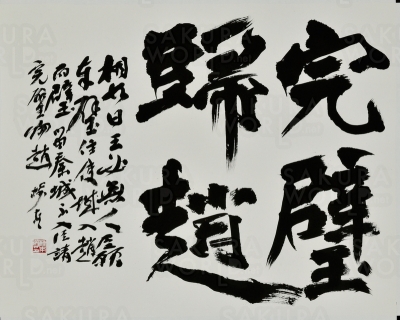 完璧
歸趙
相如曰王必無人臣願
奉璧往使城入趙
而璧留秦城不入臣請
完璧歸趙
SAKURA
WORLD